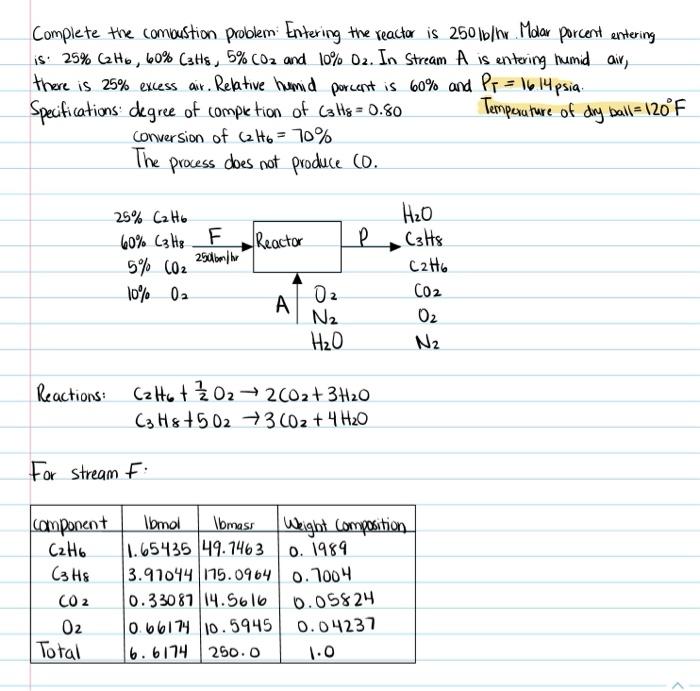 Complete the combustion problem: Entering the reactor is 250 lb/hr. Molar percent entering
is: 25% C2H6, 60% C3H8, 5% CO2 and 10% O2. In Stream A is entering humid air,
there is 25% excess air. Relative humid percent is 60% and PT = 16.14 psia.
Specifications: degree of completion of C3H8 = 0.80
Temperature of dry ball = 120°F
conversion of C2H6 = 70%
The process does not produce CO.
25% C2H6
60% C3H8
5% CO2
10% O2
F
250lbm/hr
Reactor
P
H2O
C3H8
C2H6
CO2
O2
N2
A
O2
N2
H2O
Reactions: C2H6 + 7/2 O2 → 2CO2 + 3H2O
C3H8 + 5O2 → 3CO2 + 4H2O
For stream F:
component lbmol lbmass Weight Composition
C2H6 1.65435 49.7463 0.1989
C3H8 3.97044 175.0964 0.7004
CO2 0.33087 14.5616 0.05824
O2 0.66174 10.5945 0.04237
Total 6.6174 250.0 1.0